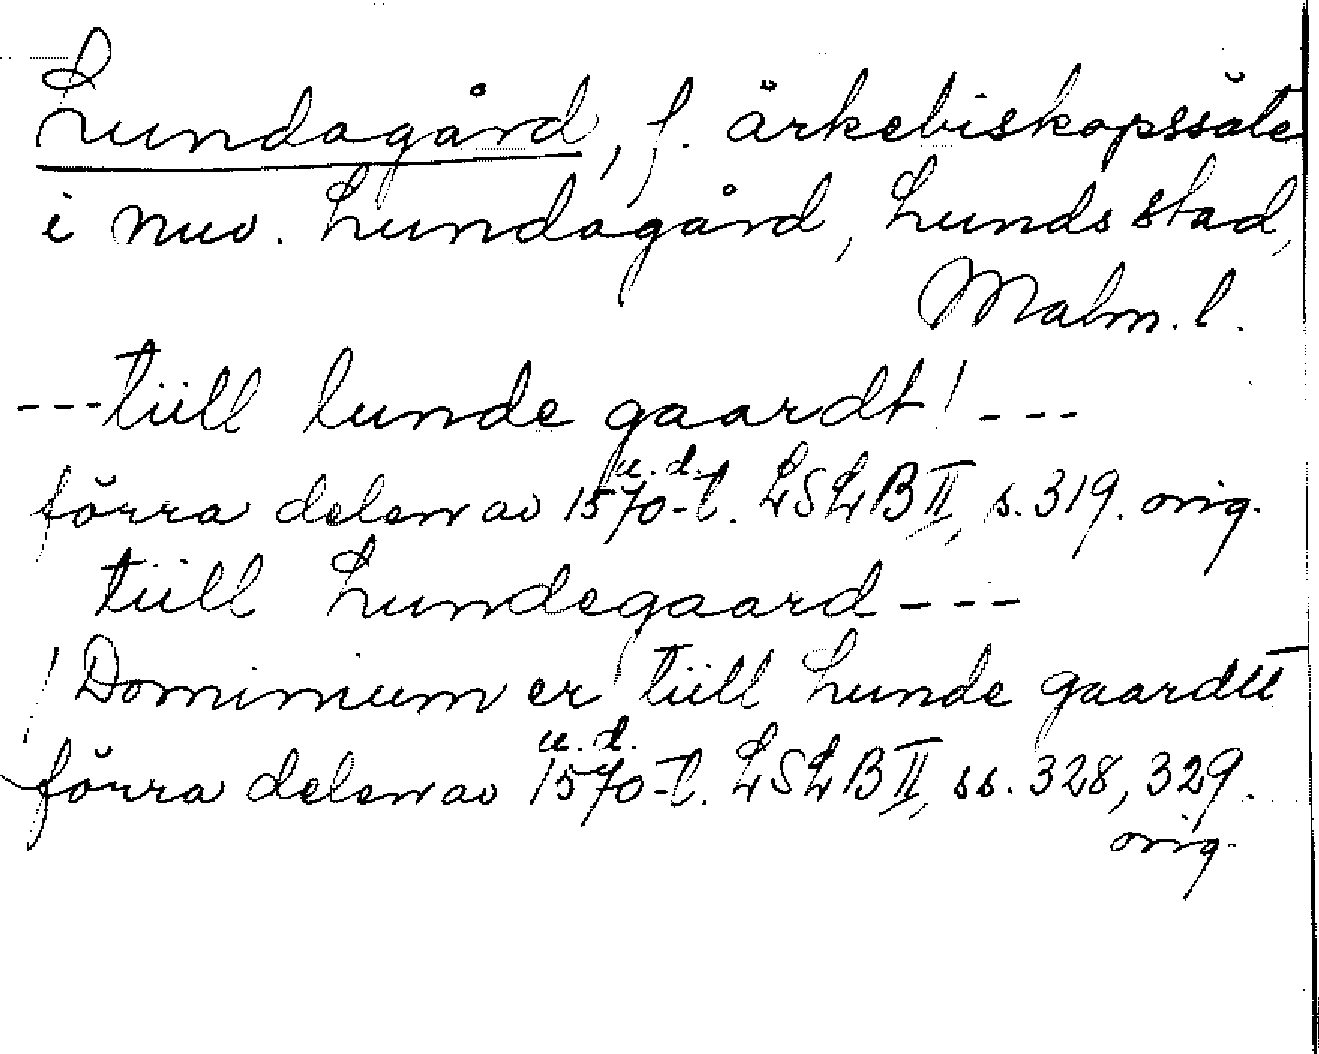 L
Lundagård, f. ärkebiskopssäte
i nuv. Lundagård, Lunds stad,
Malm. l.
---tiill lunde gaardt! ---
u. d.
förra delen av 1570-t. LSLB II, s. 319. orig.
tiill Lundegaard ---
! Dominium er tiill Lunde gaardtt
u. d.
förra delen av 1570-t. LSLB II, ss. 328, 329.
orig.